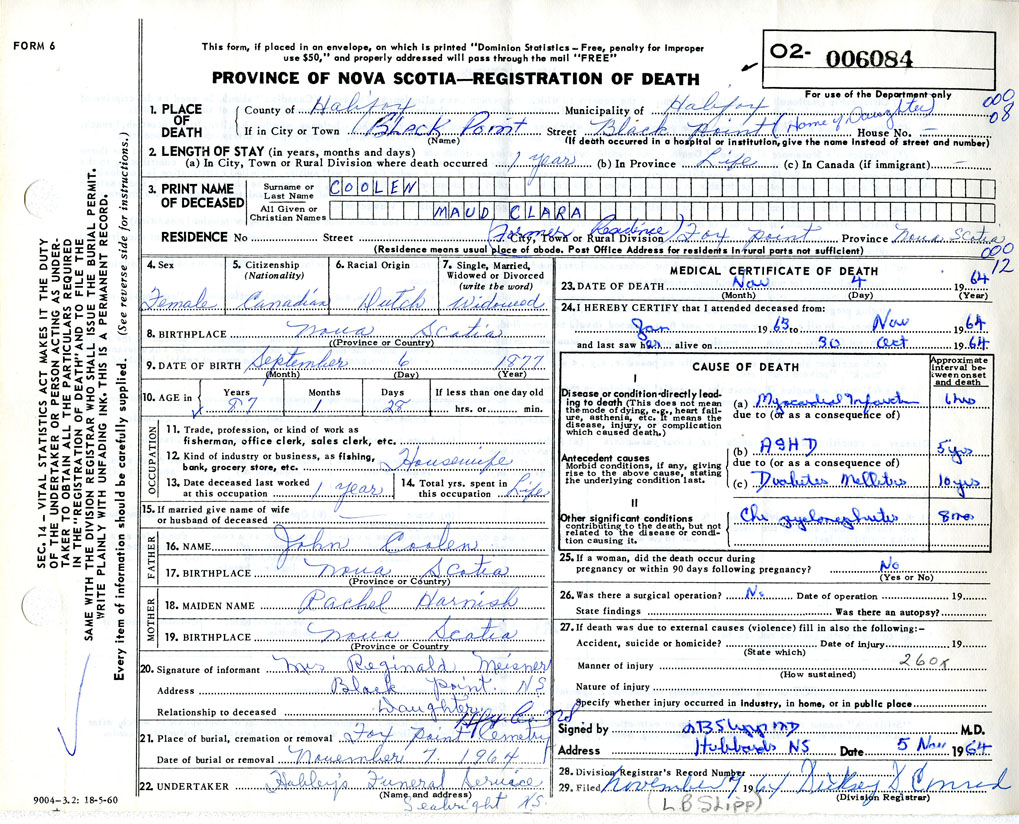 FORM 6
This form, if placed in an envelope, on which is printed "Dominion Statistics – Free, penalty for improper
use $50," and properly addressed will pass through the mail "FREE"
PROVINCE OF NOVA SCOTIA—REGISTRATION OF DEATH
O2- 006084
For use of the Department only
000
08
1. PLACE OF DEATH
County of Halifax Municipality of Halifax
If in City or Town Black Point Street Black Point (Home of Daughter) House No. –
(Name) (If death occurred in a hospital or institution, give the name instead of street and number)
2. LENGTH OF STAY (in years, months and days)
(a) In City, Town or Rural Division where death occurred 1 year (b) In Province Life (c) In Canada (if immigrant) –
3. PRINT NAME OF DECEASED
Surname or Last Name COOLEN
All Given or Christian Names MAUD CLARA
RESIDENCE No Street (Former Residence) City, Town or Rural Division Fox Point Province Nova Scotia
(Residence means usual place of abode. Post Office Address for residents in rural parts not sufficient)
000
12
4. Sex Female
5. Citizenship (Nationality) Canadian
6. Racial Origin Dutch
7. Single, Married, Widowed or Divorced (write the word) Widowed
8. BIRTHPLACE Nova Scotia
(Province or Country)
9. DATE OF BIRTH September 6 1877
(Month) (Day) (Year)
10. AGE in Years 87 Months 1 Days 28 If less than one day old hrs. or min.
OCCUPATION
11. Trade, profession, or kind of work as
fisherman, office clerk, sales clerk, etc.
12. Kind of industry or business, as fishing,
bank, grocery store, etc. Housewife
13. Date deceased last worked
at this occupation 1 year
14. Total yrs. spent in
this occupation Life
15. If married give name of wife
or husband of deceased –
FATHER
16. NAME John Coolen
17. BIRTHPLACE Nova Scotia
(Province or Country)
MOTHER
18. MAIDEN NAME Rachel Harnish
19. BIRTHPLACE Nova Scotia
(Province or Country)
20. Signature of informant Mrs Reginald Meisner
Address Black Point. NS
Relationship to deceased Daughter
21. Place of burial, cremation or removal Fox Point Cemetry
Date of burial or removal November 7, 1964
22. UNDERTAKER Hubley's Funeral Service
(Name and address)
Seabright NS.
9004–3.2: 18-5-60
MEDICAL CERTIFICATE OF DEATH
23. DATE OF DEATH Nov 4 1964
(Month) (Day) (Year)
24. I HEREBY CERTIFY that I attended deceased from:
Jan 1963 to Nov 1964
and last saw her alive on 30 Oct 1964
CAUSE OF DEATH
Approximate interval between onset and death
I
Disease or condition directly leading to death (This does not mean the mode of dying, e.g., heart failure, asthenia, etc. It means the disease, injury, or complication which caused death.)
(a) Myocardial Infarction 1 hrs
due to (or as a consequence of)
Antecedent causes
Morbid conditions, if any, giving rise to the above cause, stating the underlying condition last.
(b) ASHD 5 yrs
due to (or as a consequence of)
(c) Diabetes Mellitus 10 yrs
II
Other significant conditions
contributing to the death, but not related to the disease or condition causing it.
Chr pyelonephritis 8 mo
25. If a woman, did the death occur during
pregnancy or within 90 days following pregnancy? No
(Yes or No)
26. Was there a surgical operation? No Date of operation 19
State findings Was there an autopsy?
27. If death was due to external causes (violence) fill in also the following:–
Accident, suicide or homicide? Date of injury 19
(State which)
260x
Manner of injury
(How sustained)
Nature of injury
Specify whether injury occurred in industry, in home, or in public place
Signed by LB Slipp MD M.D.
Address Hubbards NS Date 5 Nov 1964
28. Division Registrar's Record Number
29. Filed November 9 1964 Conrad
(Division Registrar)
(L B Slipp)
SEC. 14 – VITAL STATISTICS ACT MAKES IT THE DUTY
OF THE UNDERTAKER OR PERSON ACTING AS UNDER-
TAKER TO OBTAIN ALL THE PARTICULARS REQUIRED
IN THE "REGISTRATION OF DEATH" AND TO FILE THE
SAME WITH THE DIVISION REGISTRAR WHO SHALL ISSUE THE BURIAL PERMIT.
WRITE PLAINLY WITH UNFADING INK. THIS IS A PERMANENT RECORD.
Every item of information should be carefully supplied. (See reverse side for instructions.)